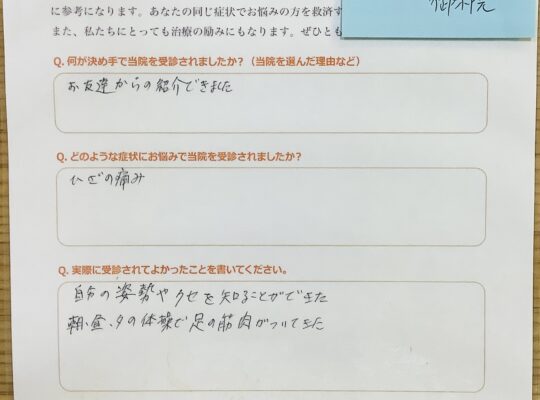 に参考になります。あなたの同じ症状でお悩みの方を救済す
また、私たちにとっても治療の励みにもなります。ぜひとも
Q. 何が決め手で当院を受診されましたか？（当院を選んだ理由など）
お友達からの紹介できました
Q. どのような症状にお悩みで当院を受診されましたか？
ひざの痛み
Q. 実際に受診されてよかったことを書いてください。
自分の姿勢やクセを知ることができた
朝、昼、夕の体操で足の筋肉がついてきた